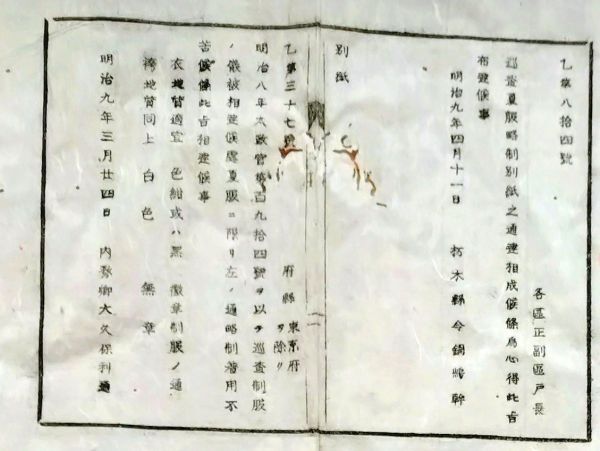 乙第八拾四號
各區正副區戸長
巡査夏服略制別紙之通達相成候條為心得此旨
布達候事
明治九年四月十一日　栃木縣令鍋島幹
別紙
乙第三十七號
府縣　東京府ヲ除ク
明治八年太政官第百九拾四號ヲ以テ巡査制服
ノ儀被相達候處夏服ニ限リ左ノ通略制著用不
苦候條此旨相達候事
衣地質適宜　色紺或ハ黒　徽章制服ノ通
袴地質同上　白色　無章
明治九年三月廿四日　内務卿大久保利通